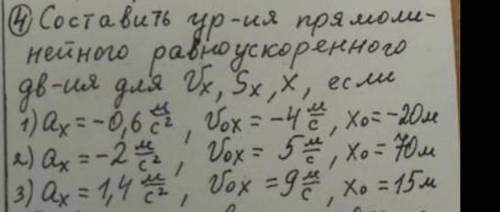 ④ Составить ур-ия прямоли-
нейного равноускоренного
дв-ия для Vx, Sx, x, если
1) ax = -0,6 м/с², V0x = -4 м/с, x0 = -20м
2) ax = -2 м/с², V0x = 5 м/с, x0 = 70м
3) ax = 1,4 м/с², V0x = 9 м/с, x0 = 15м